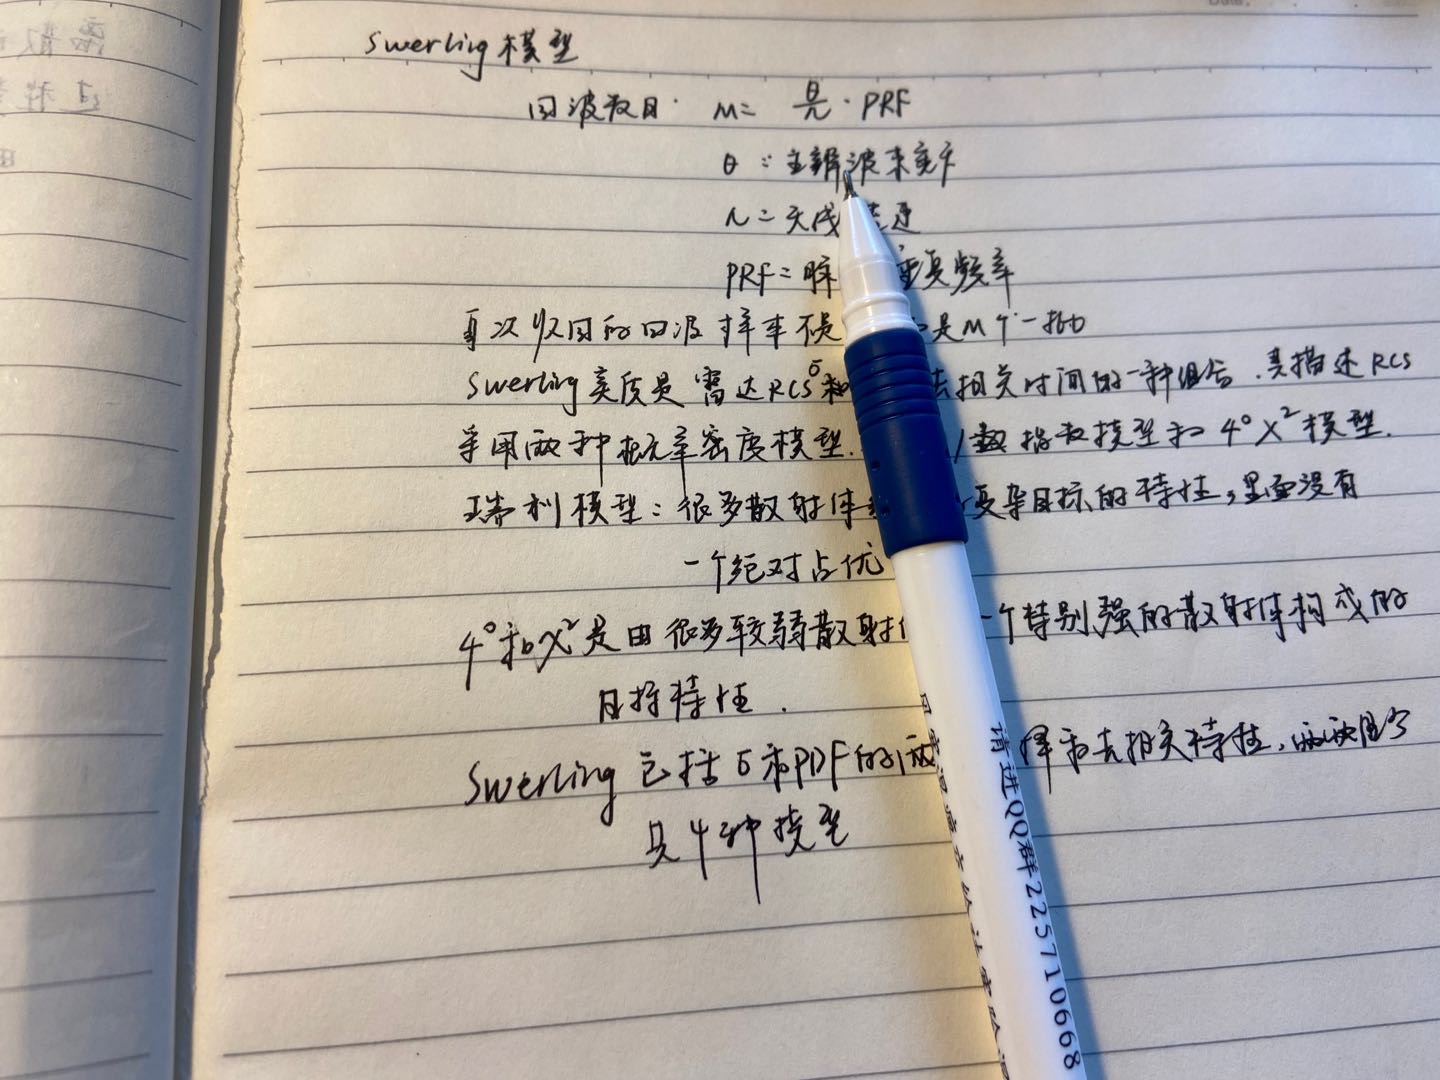 Swerling模型
回波数目. M= θ/Ω · PRF
θ: 主瓣波束宽度
Ω= 天线 速
PRF= 脉 重复频率
每次收回的回波样本不是 是M个一抽
Swerling实质是雷达RCS σ和 去相关时间的一种组合.其描述RCS
采用两种概率密度模型. 指数模型和4°χ²模型.
瑞利模型:很多散射体 复杂目标的特性,里面没有
一个绝对占优
4°和χ²是由很多较弱散射 一个特别强的散射体构成的
目标特性.
Swerling包括σ和PDF的 择和去相关特性,
共4种模型
请进QQ群225710668